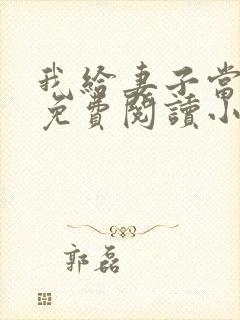 我給妻子當
免費閱讀小
郭磊